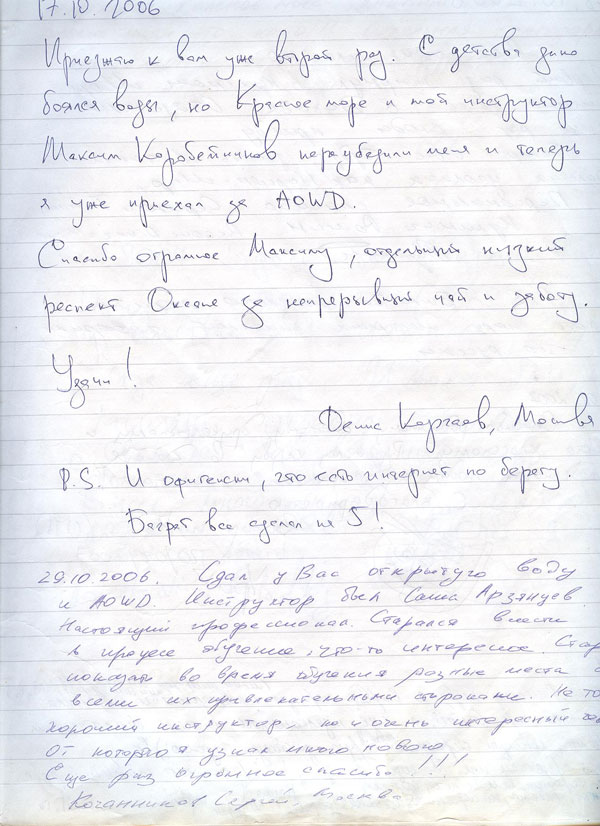 17.10.2006
Приезжаю к вам уже второй раз. С детства дико
боялся воды, но Красное море и мой инструктор
Максим Коробейников переубедили меня и теперь
я уже приехал за AOWD.
Спасибо огромное Максиму, отдельный низкий
респект Оксане за непрерывный чай и заботу.
Удачи!
Денис Каргаев, Москва
P.S. И офигенски, что есть интернет по берегу.
Баграт все сделал на 5!
29.10.2006. Сдал у Вас открытую воду
и AOWD. Инструктор был Саша Арзянцев
Настоящий профессионал. Старался внести
в процесс обучения, что-то интересное. Стар
показать во время обучения разные места с
всеми их привлекательными сторонами. Не то
хороший инструктор, но и очень интересный че
от которого я узнал много нового.
Еще раз огромное спасибо!!!
Сергей. Москва